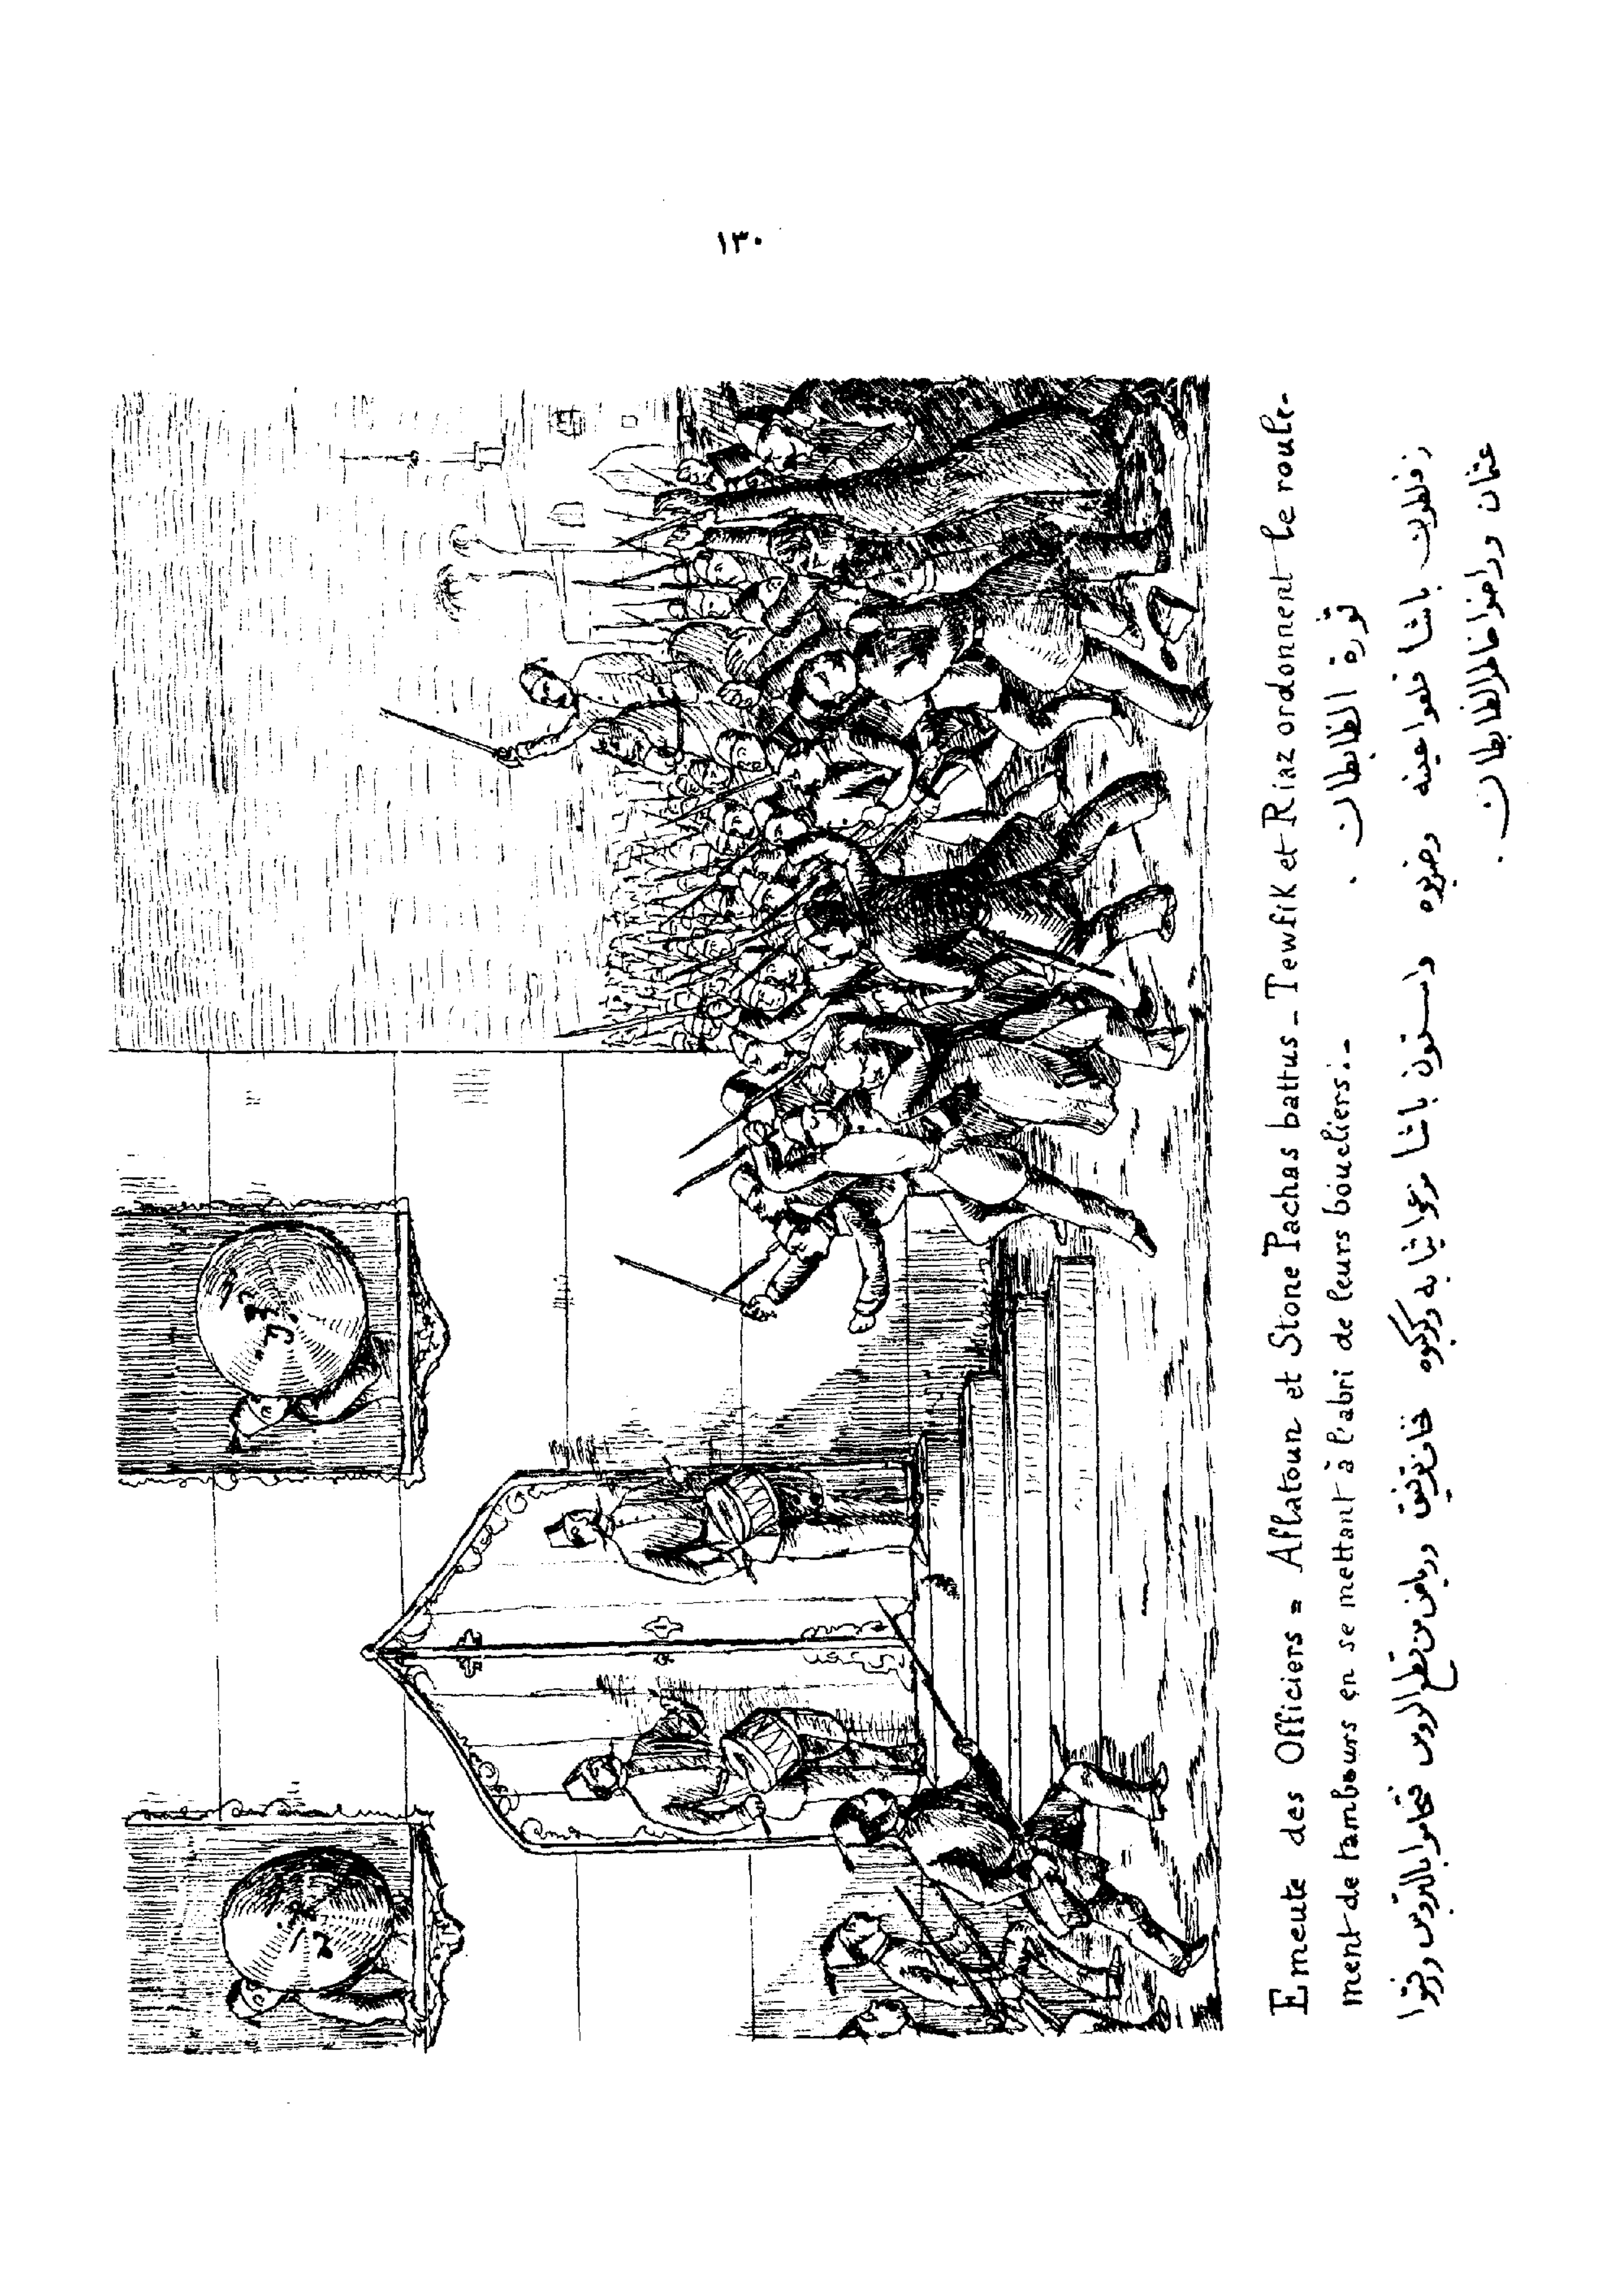 ١٣٠
توفيق
رياض
Emeute des Officiers = Aflatoun et Stone Pachas battus _ Tewfik et Riaz ordonnent le roule-
ment de tambours en se mettant à l'abri de leurs boucliers._
ثورة الظابطان .
زفلطون باشا قلعوا عينه وضربوه واستون باشا مزعوا ثيابه وركبوه خاف توفيق ورياض من قطع الروس فتحاموا بالتروس ودقوا
عثمان وراضوا خاطر الظابطان .